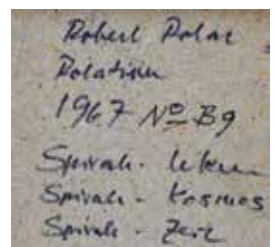 Robert Rotar
Rotation
1967 Nº B9
Spirale - Leben
Spirale - Kosmos
Spirale - Zeit